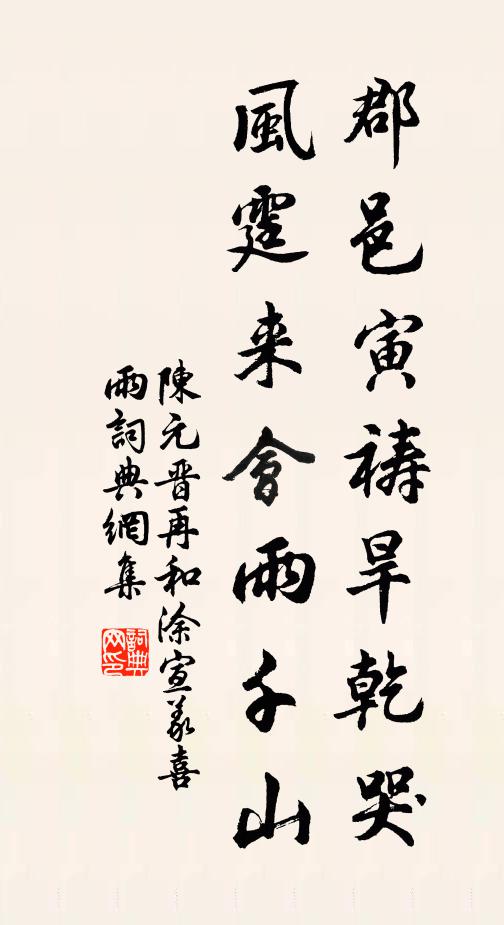 郡邑寅禱旱乾哭
風霆来會雨千山
陳元晋再和涂宣义喜
雨詞典網集
詞典网印